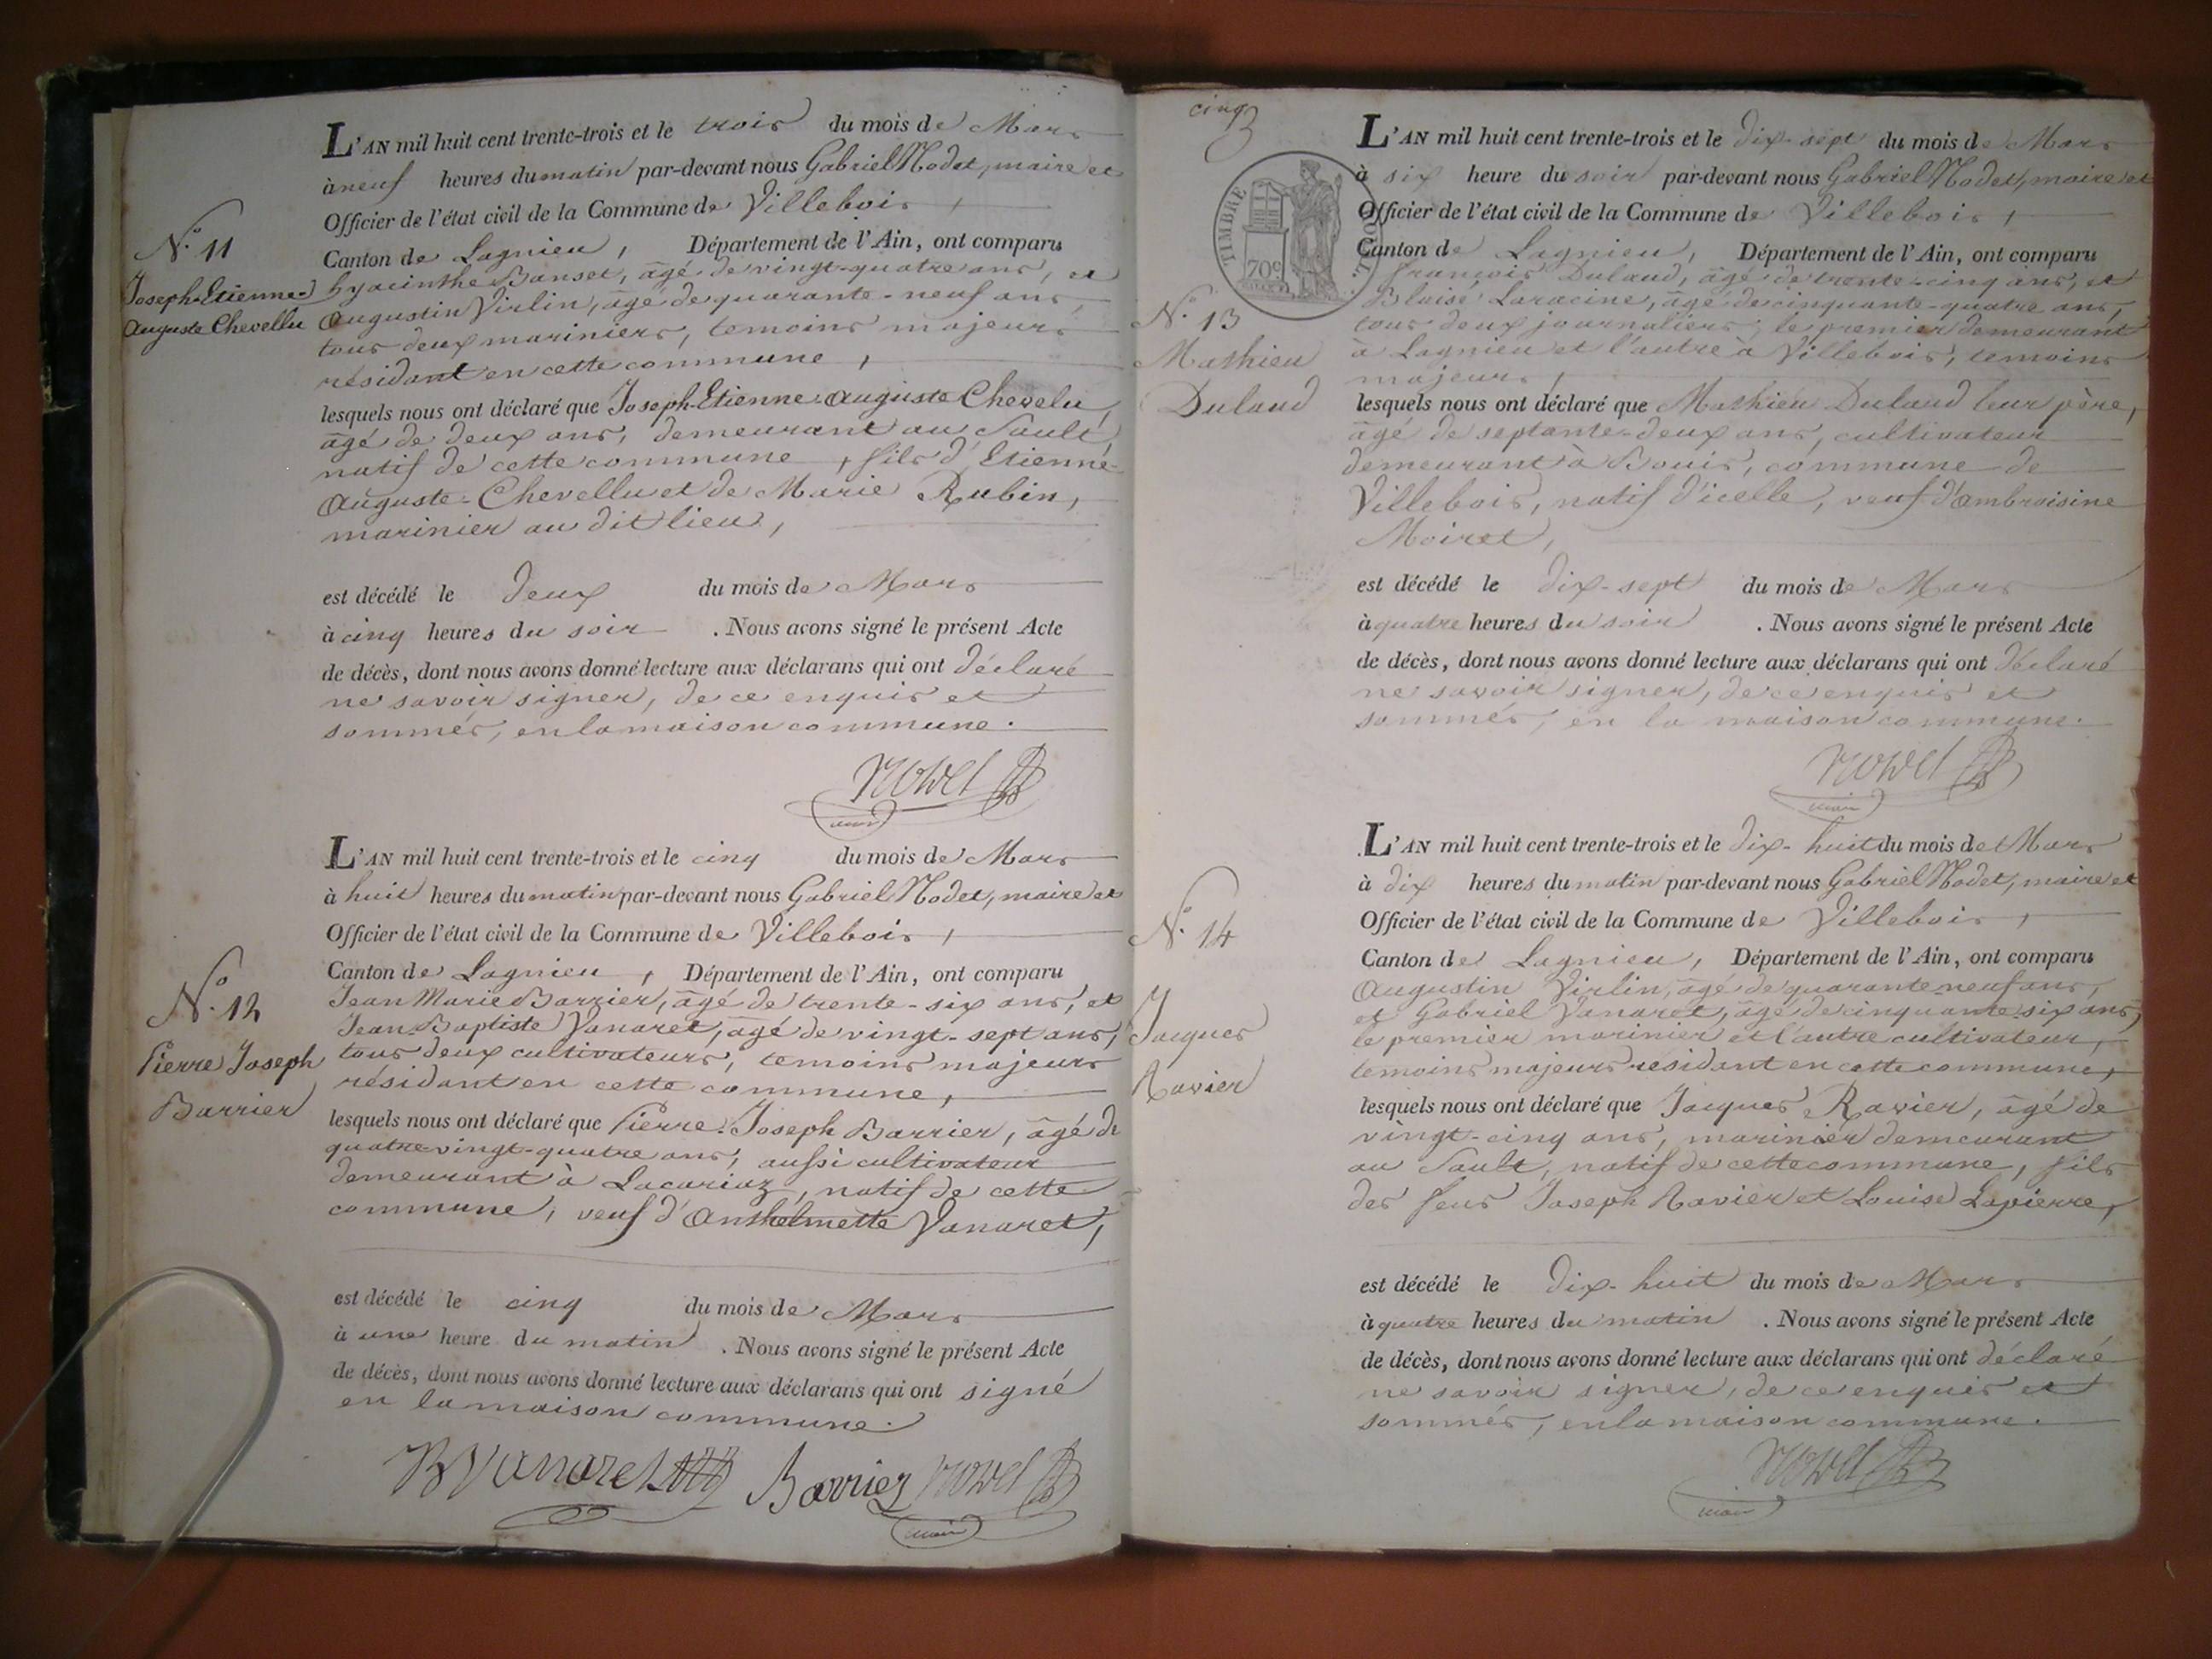 N.º 11
Joseph-Etienne-
Auguste Chevellu
L'AN mil huit cent trente-trois et le trois du mois de Mars
à neuf heures du matin par-devant nous Gabriel Nodet, maire et
Officier de l'état civil de la Commune de Villebois,
Canton de Lagnieu, Département de l'Ain, ont comparu
hyacinthe Banset, âgé de vingt-quatre ans, et
Augustin Virlin, âgé de quarante-neuf ans,
tous deux mariniers, temoins majeurs
résidant en cette commune,
lesquels nous ont déclaré que Joseph-Etienne-Auguste Chevelu,
âgé de deux ans, demeurant au Sault,
natif de cette commune, fils d'Etienne-
Auguste-Chevellu et de Marie Rubin,
marinier au dit lieu,
est décédé le deux du mois de Mars
à cinq heures du soir. Nous avons signé le présent Acte
de décès, dont nous avons donné lecture aux déclarans qui ont déclaré
ne savoir signer, de ce enquis et
sommés, en la maison commune.
Nodet
maire
N.º 12
Pierre Joseph
Barrier
L'AN mil huit cent trente-trois et le cinq du mois de Mars
à huit heures du matin par-devant nous Gabriel Nodet, maire et
Officier de l'état civil de la Commune de Villebois,
Canton de Lagnieu, Département de l'Ain, ont comparu
Jean Marie Barrier, âgé de trente-six ans, et
Jean Baptiste Vanaret, âgé de vingt-sept ans,
tous deux cultivateurs, temoins majeurs
résidant en cette commune,
lesquels nous ont déclaré que Pierre-Joseph Barrier, âgé de
quatre-vingt-quatre ans, aussi cultivateur
demeurant à Lacariaz, natif de cette
commune, veuf d'Anthelmette Vanaret,
est décédé le cinq du mois de Mars
à une heure du matin. Nous avons signé le présent Acte
de décès, dont nous avons donné lecture aux déclarans qui ont signé
en la maison commune.
BVanaret Barrier Nodet
maire
cinq
TIMBRE ROYAL
70c
N.º 13
Mathieu
Dulaud
L'AN mil huit cent trente-trois et le dix-sept du mois de Mars
à six heure du soir par-devant nous Gabriel Nodet, maire et
Officier de l'état civil de la Commune de Villebois,
Canton de Lagnieu, Département de l'Ain, ont comparu
françois Dulaud, âgé de trente-cinq ans, et
Blaise Laracine, âgé de cinquante-quatre ans,
tous deux journaliers, le premier demeurant
à Lagnieu et l'autre à Villebois, temoins
majeurs,
lesquels nous ont déclaré que Mathieu Dulaud leur père,
âgé de septante-deux ans, cultivateur
demeurant à Bouis, commune de
Villebois, natif d'icelle, veuf d'Ambroisine
Moiret,
est décédé le dix-sept du mois de Mars
à quatre heures du soir. Nous avons signé le présent Acte
de décès, dont nous avons donné lecture aux déclarans qui ont déclaré
ne savoir signer, de ce enquis et
sommés, en la maison commune.
Nodet
maire
N.º 14
Jacques
Ravier
L'AN mil huit cent trente-trois et le dix-huit du mois de Mars
à dix heures du matin par-devant nous Gabriel Nodet, maire et
Officier de l'état civil de la Commune de Villebois,
Canton de Lagnieu, Département de l'Ain, ont comparu
Augustin Virlin, âgé de quarante-neuf ans,
et Gabriel Vanaret, âgé de cinquante-six ans,
le premier marinier et l'autre cultivateur,
temoins majeurs résidant en cette commune,
lesquels nous ont déclaré que Jacques Ravier, âgé de
vingt-cinq ans, marinier demeurant
au Sault, natif de cette commune, fils
des feus Joseph Ravier et Louise Lapierre,
est décédé le dix-huit du mois de Mars
à quatre heures du matin. Nous avons signé le présent Acte
de décès, dont nous avons donné lecture aux déclarans qui ont déclaré
ne savoir signer, de ce enquis et
sommés, en la maison commune.
Nodet
maire